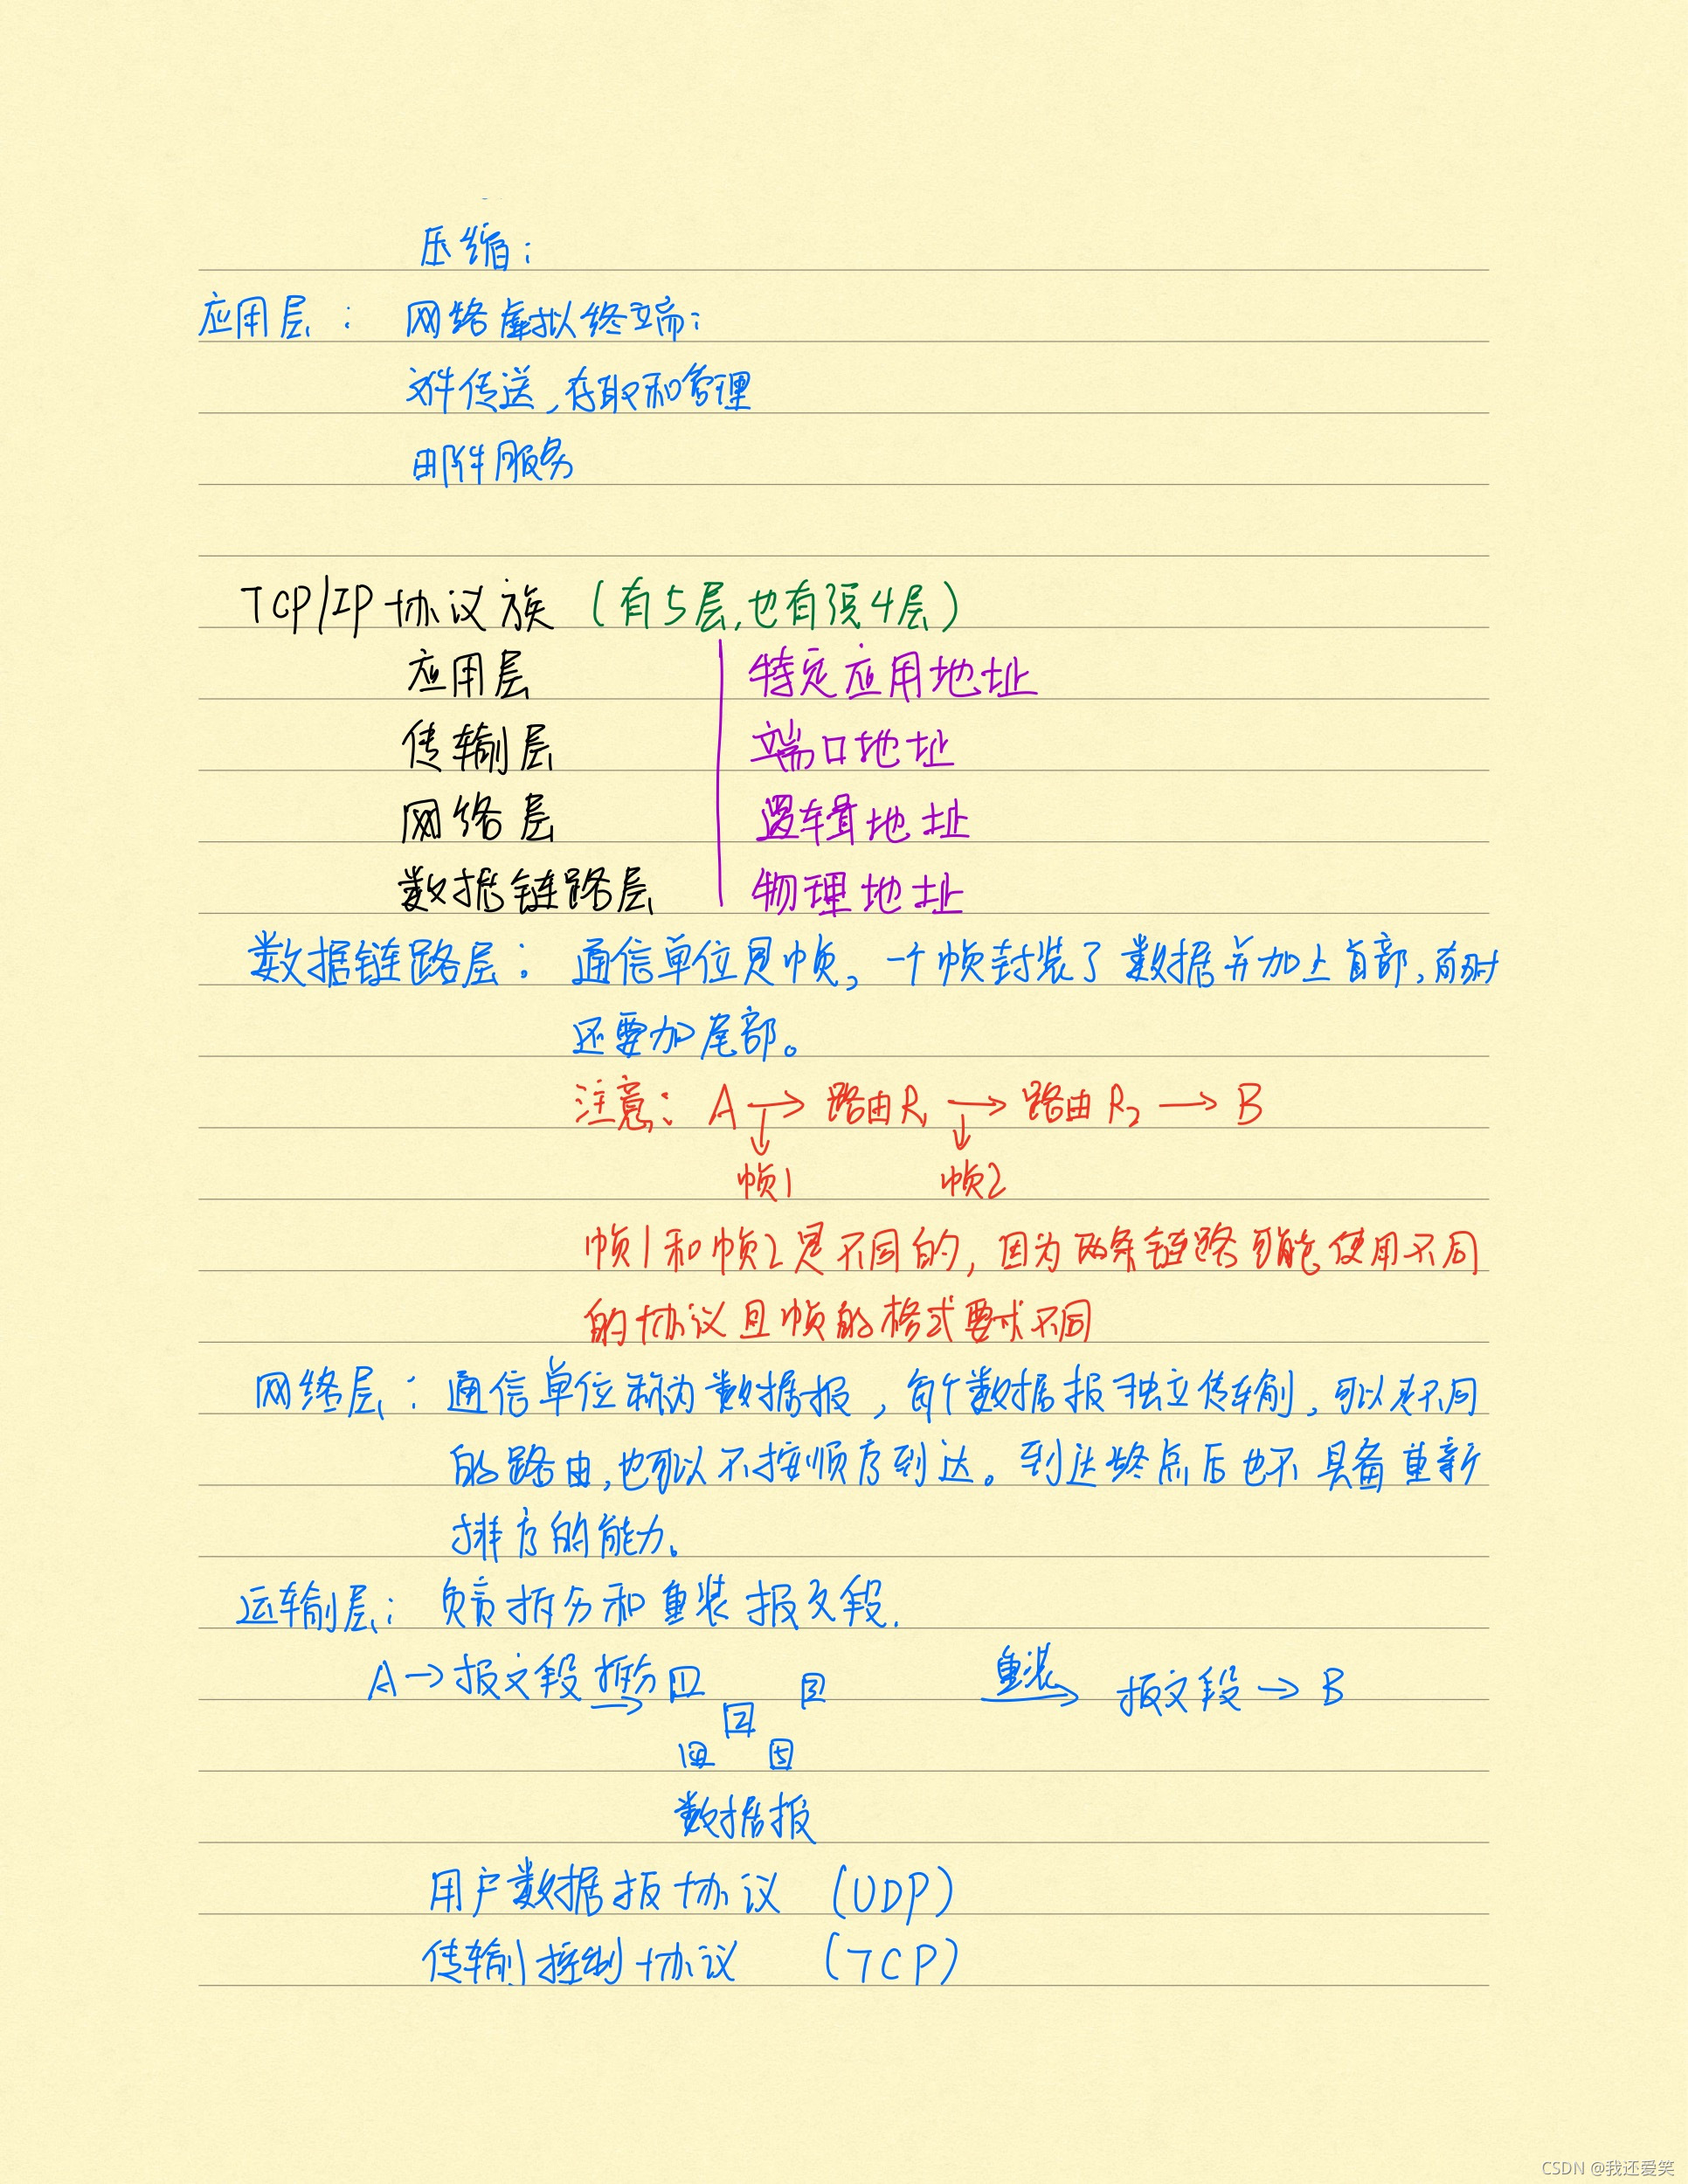 压缩；
应用层： 网络虚拟终端；
文件传送，存取和管理
邮件服务
TCP/IP协议族 （有5层，也有说4层）
应用层 特定应用地址
传输层 端口地址
网络层 逻辑地址
数据链路层 物理地址
数据链路层： 通信单位是帧，一个帧封装了数据并加上首部，有时
还要加尾部。
注意： A → 路由R1 → 路由R2 → B
↓ ↓
帧1 帧2
帧1和帧2是不同的，因为两条链路可能使用不同
的协议且帧的格式要求不同
网络层： 通信单位称为数据报，每个数据报独立传输，可以走不同
的路由，也可以不按顺序到达。到达终点后也不具备重新
排序的能力。
运输层； 负责拆分和重装报文段.
A → 报文段 拆分→ 1 3 重装→ 报文段 → B
2
4 5
数据报
用户数据报协议 （UDP）
传输控制协议 （TCP）
CSDN @我还爱笑